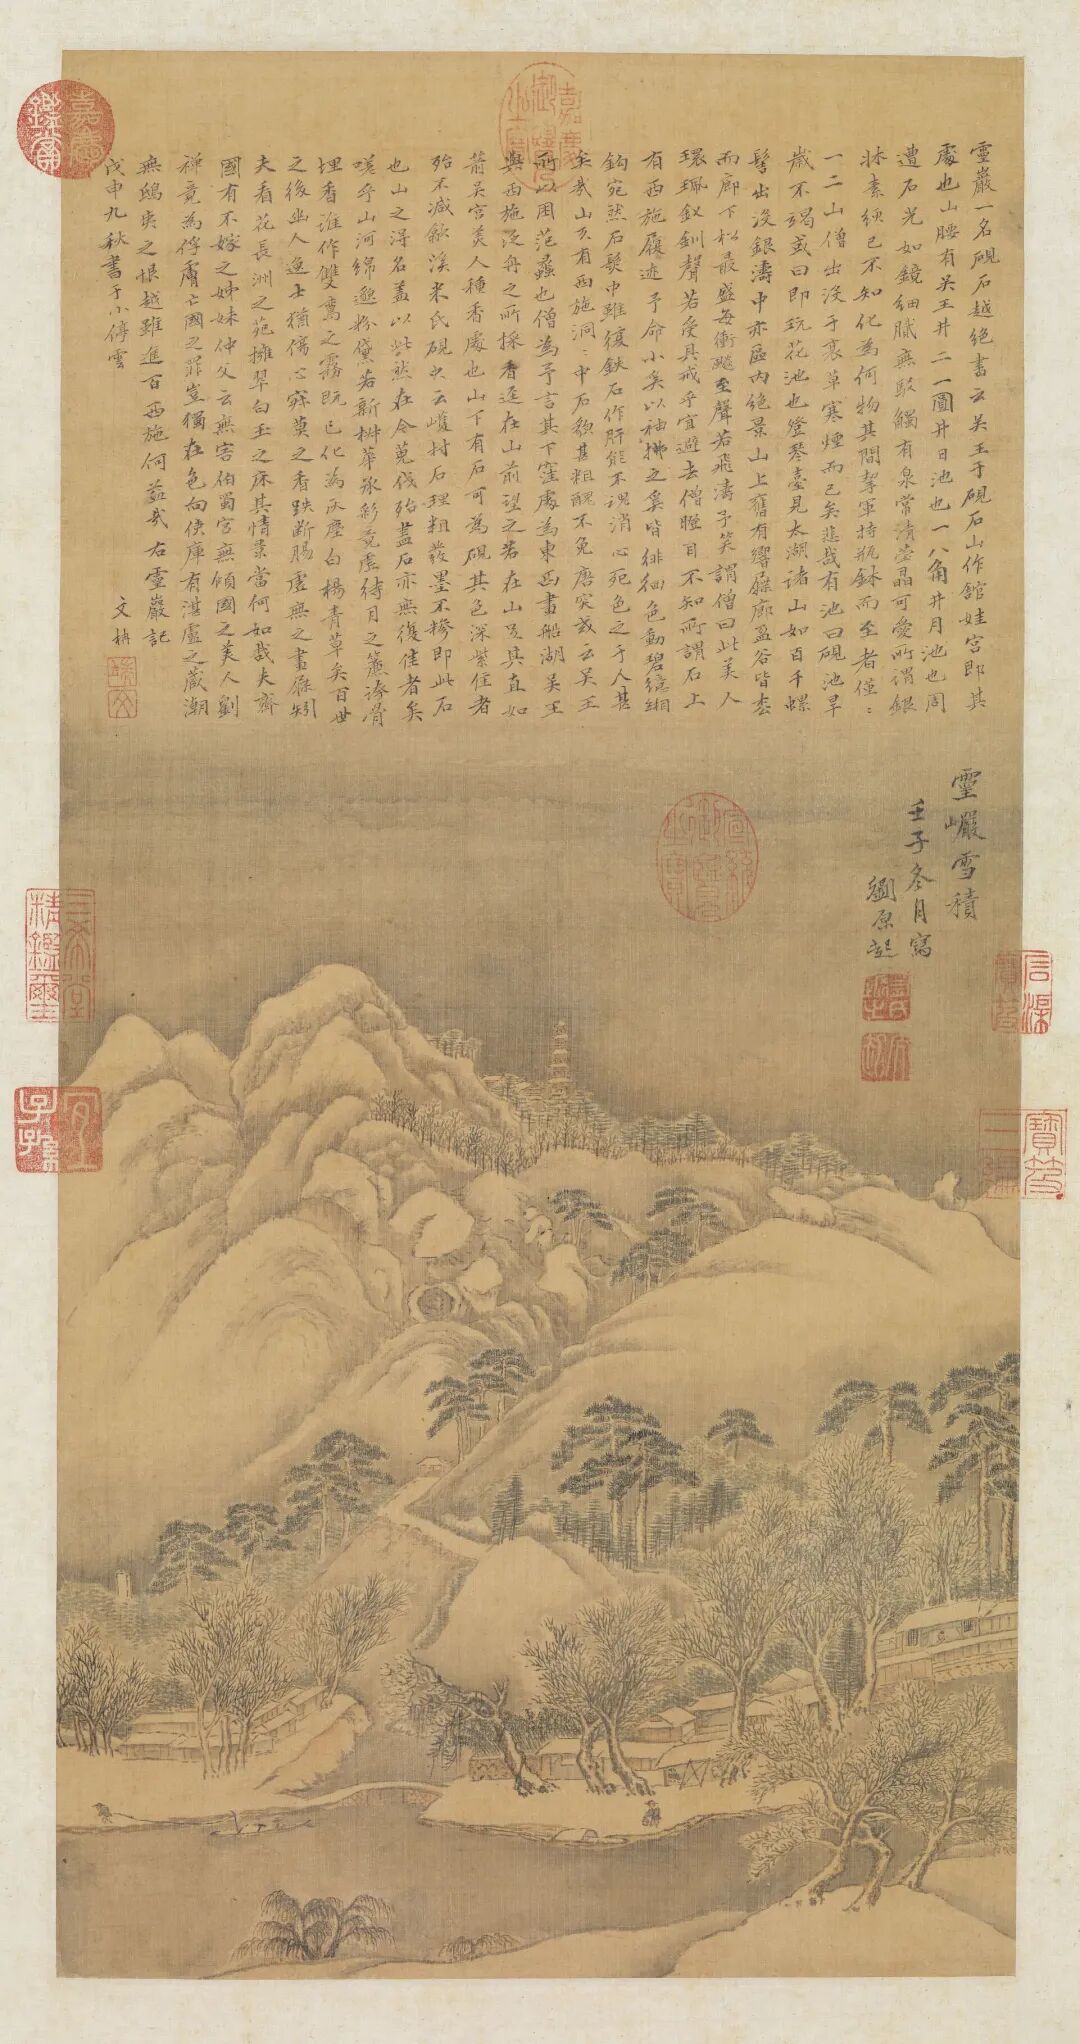 靈巖一名硯石越絕書云吳王于硯石山作館娃宮即其
處也山腰有吳王井二一圓井日池也一八角井月池也周
遭石光如鏡細膩無駁觸有泉常清瑩晶可愛所謂銀
牀素綆已不知化為何物其間挈軍持瓶鉢而至者僅
一二山僧出沒于衰草寒煙而已矣悲哉有池曰硯池旱
歲不竭或曰即玩花池也登琴臺見太湖諸山如百千螺
髻出沒銀濤中亦區內絕景山上舊有響屧廊盈谷皆松
而廊下松最盛每衝飈至聲若飛濤予笑謂僧曰此美人
環珮釵釧聲若受具戒乎宜避去僧瞪目不知所謂石上
有西施履迹予命小奚以袖拂之奚皆徘徊色動碧繶緗
鈎宛然石髮中雖復鐵石作肝能不魂消心死色之于人甚
矣哉山亥有西施洞洞中石貌甚粗醜不免唐突或云吳王
所以囚范蠡也僧為予言其下窪處為東西畫船湖吳王
與西施泛舟之所採香逕在山前望之若在山足其直如
箭吳宮美人種香處也山下有石可為硯其色深紫佳者
殆不減歙溪米氏硯史云蠖村石理粗發墨不糝即此石
也山之得名蓋以此然在今蒐伐殆盡石亦無復佳者矣
嗟乎山河綿邈粉黛若新椒華沉彩竟虛待月之簾誇骨
埋香誰作雙鸞之霧既已化為灰塵白楊青草矣百世
之後幽人逸士猶傷心寂莫之香趺斷腸虛無之畫屧矧
夫看花長洲之苑擁翠白玉之床其情景當何如哉夫齊
國有不嫁之姊妹仲父云無害伯蜀宮無傾國之美人劉
禪竟為俘虜亡國之罪豈獨在色向使庫有湛盧之藏潮
無鴟夷之恨越雖進百西施何益哉右靈巖記
戊申九秋書于小停雲
文柟
靈巖雪積
壬子冬月寫
劉原起
嘉慶鑑賞
嘉慶御覽之寶
宣統御覽之寶
三希堂精鑑璽
宜子孫
石渠寶笈
寶笈三編